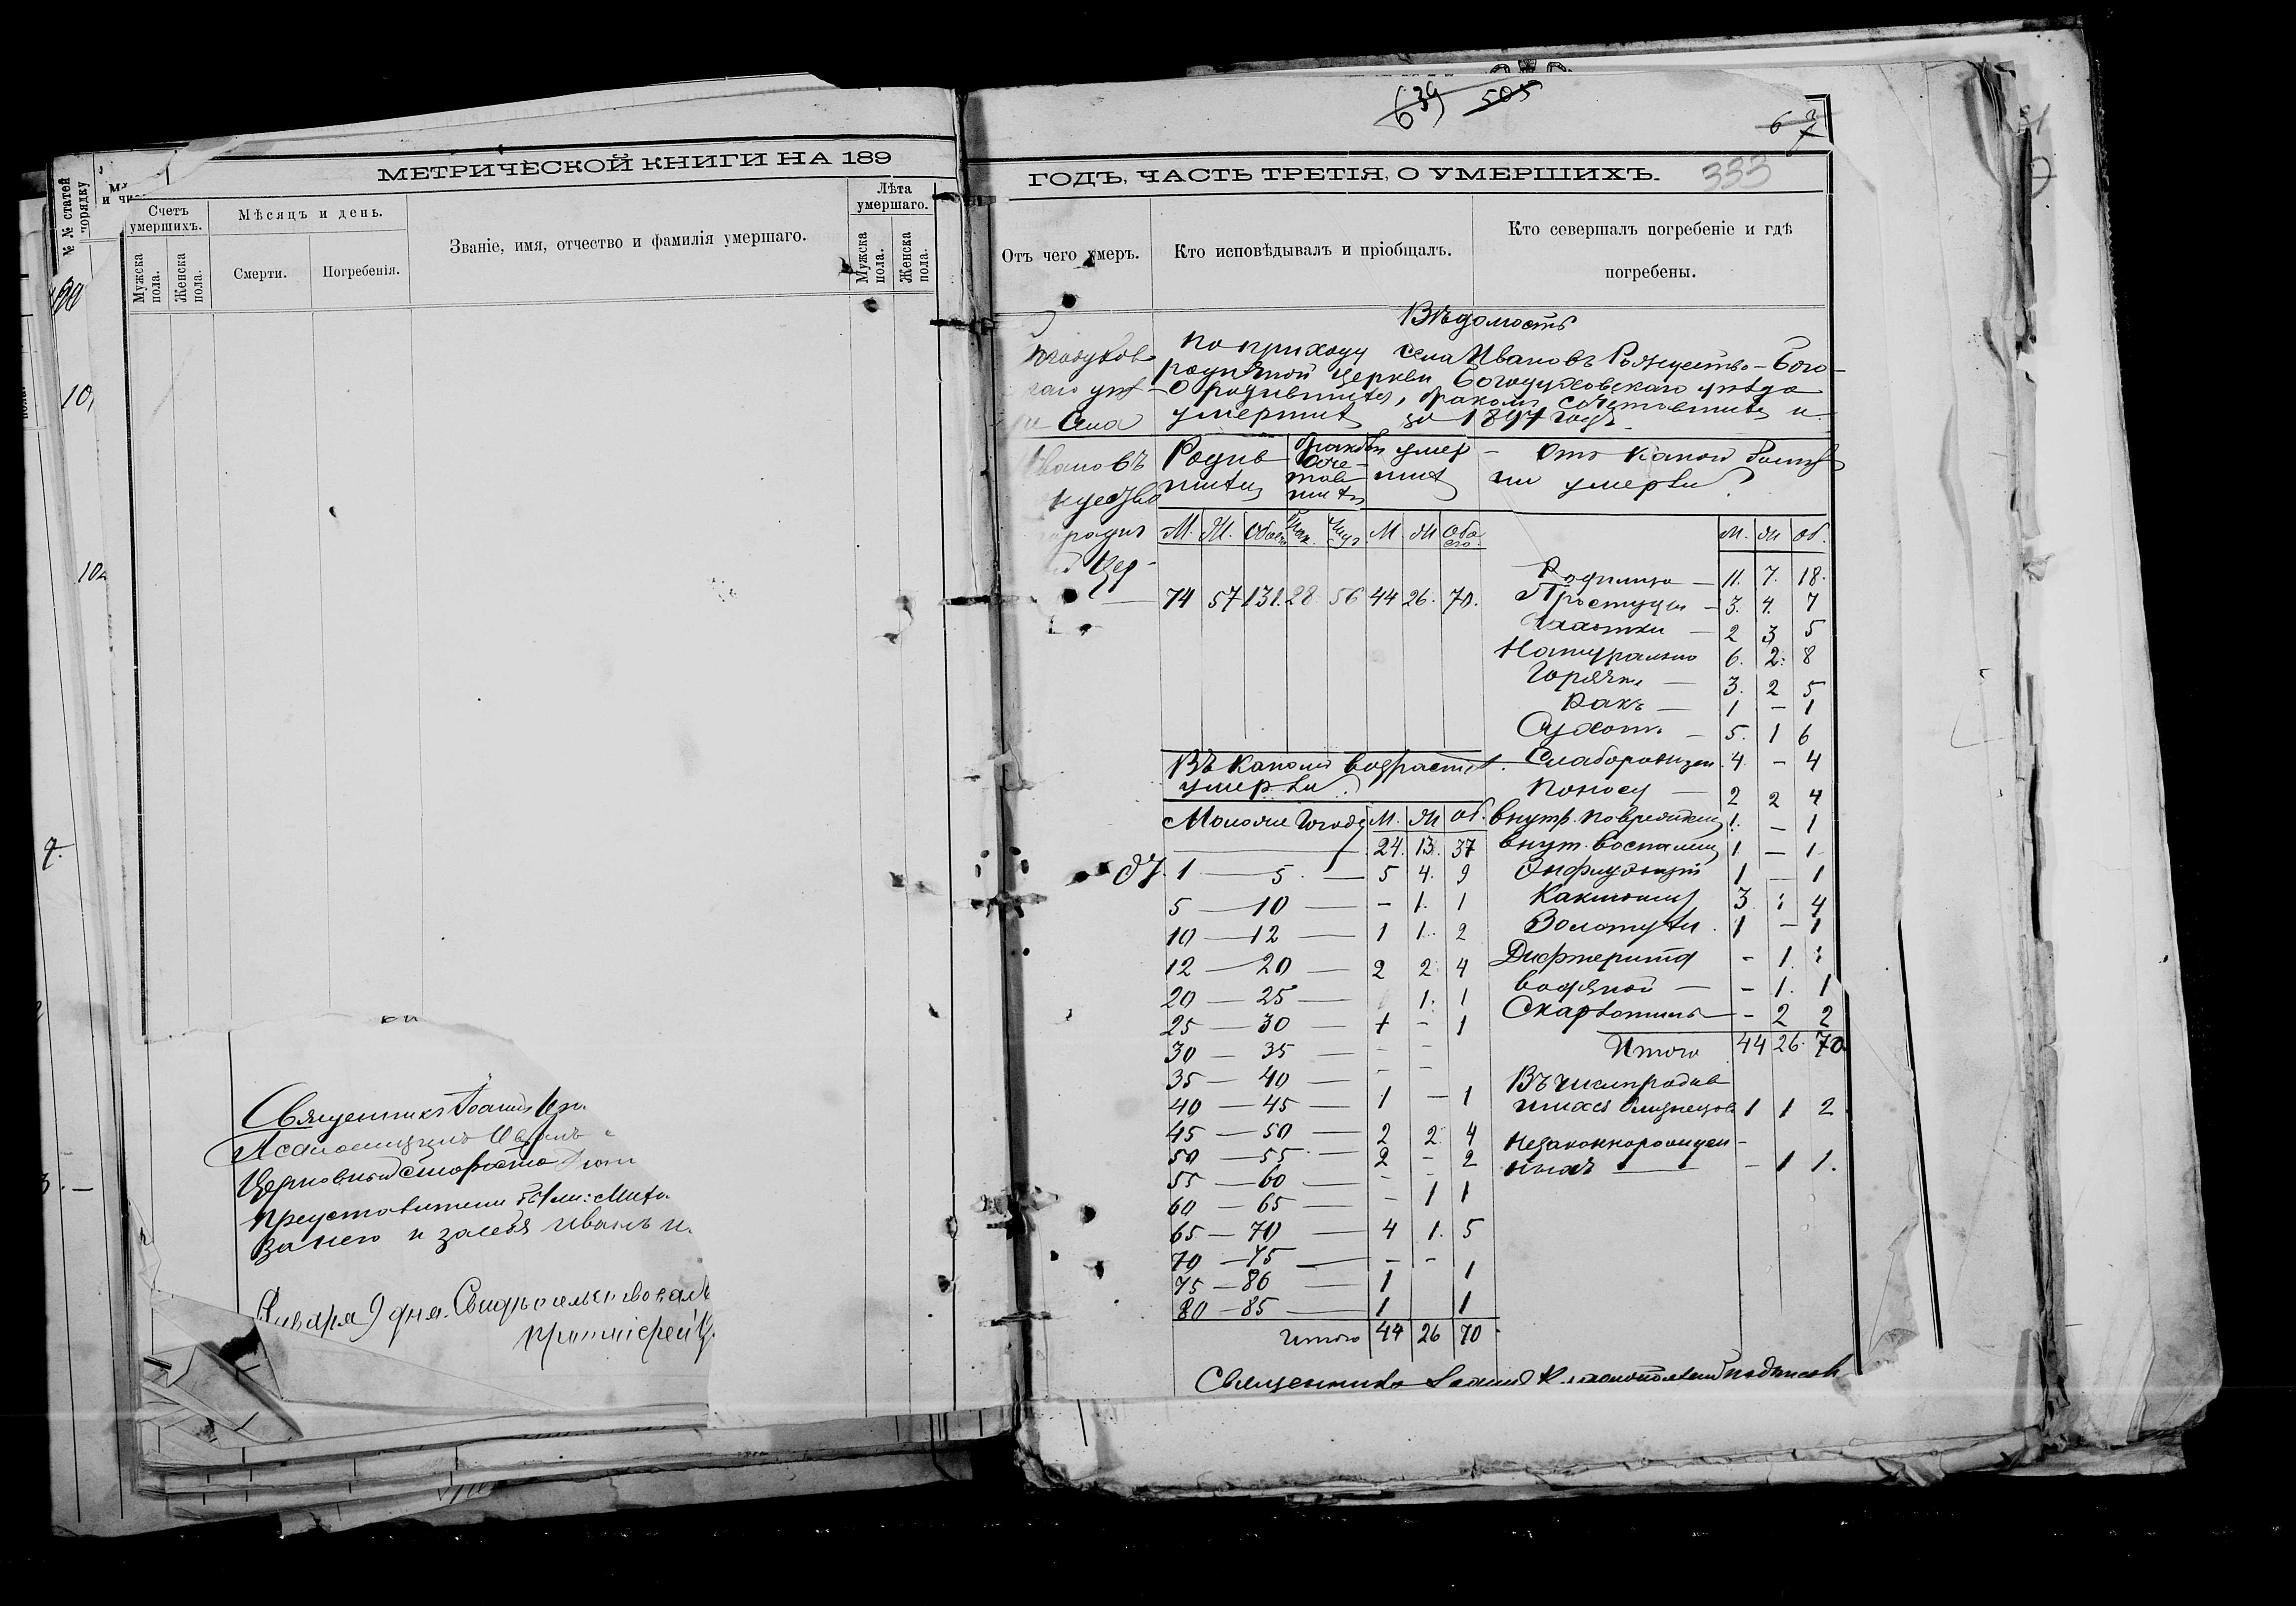 МЕТРИЧЕСКОЙ КНИГИ НА 189
№ № статей
порядку
Счетъ умершихъ.
Мѣсяцъ и день.
Званіе, имя, отчество и фамилія умершаго.
Лѣта умершаго.
Мужска пола.
Женска пола.
Смерти.
Погребенія.
Мужска пола.
Женска пола.
10
Священникъ Іоаннъ
Псаломщикъ Иванъ
Церковный староста
за него и за себя Иванъ
Января 9 дня. Свидѣтельствовалъ
639 505
333
ГОДЪ, ЧАСТЬ ТРЕТІЯ, О УМЕРШИХЪ.
Отъ чего умеръ.
Кто исповѣдывалъ и пріобщалъ.
Кто совершалъ погребеніе и гдѣ погребены.
Вѣдомость
по приходу села Ивановъ Рождество-Бого-
родичной церкви Богодуховскаго уѣзда
о родившихся, бракомъ сочетавшихся и
умершихъ за 1897 годъ
Родив шихся
бракомъ соче- тав шихся
умер шихъ
М. Ж. Обоего М Ж Обо его.
74 57 131. 28 56 44 26. 70.
Отъ какой болѣз
ни умерли?
М. Ж Об.
Родимца — 11. 7. 18.
Простуды — 3. 4. 7
Чахотки — 2 3 5
Натурально 6. 2. 8
Горячк — 3. 2 5
Ракъ — 1 – 1
Сухот — 5. 1 6
Слаборожден 4 – 4
Поносу — 2 2 4
внутр. поврежден 1. – 1
внут. воспален 1 – 1
Инфлуэнціи 1 – 1
Коклюша 3 1 4
Золотухи 1 – 1
Дифтерита – 1. 1
водяной — – 1. 1
Скарлатины – 2 2
Итого 44 26. 70
Въ числѣ родив
шихся близнецовъ 1 1 2
незаконнорожден-
ныхъ — – 1 1.
Въ какомъ возрастѣ
умерли.
Моложе года М. Ж Об.
24. 13. 37
От 1 — 5. — 5 4. 9
5 — 10 — – 1. 1
10 — 12 — 1 1. 2
12 — 20 — 2 2. 4
20 — 25 — 1. 1
25 — 30 — 1 – 1
30 — 35 — – –
35 — 40 — – –
40 — 45 — 1 – 1
45 — 50 — 2 2. 4
50 — 55 — 2 – 2
55 — 60 — – –
60 — 65 — – 1 1
65 — 70 — 4 1. 5
70 — 75 — – –
75 — 80 — 1 1
80 — 85 — 1 1
Итого 44 26 70
Священникъ Іоаннъ